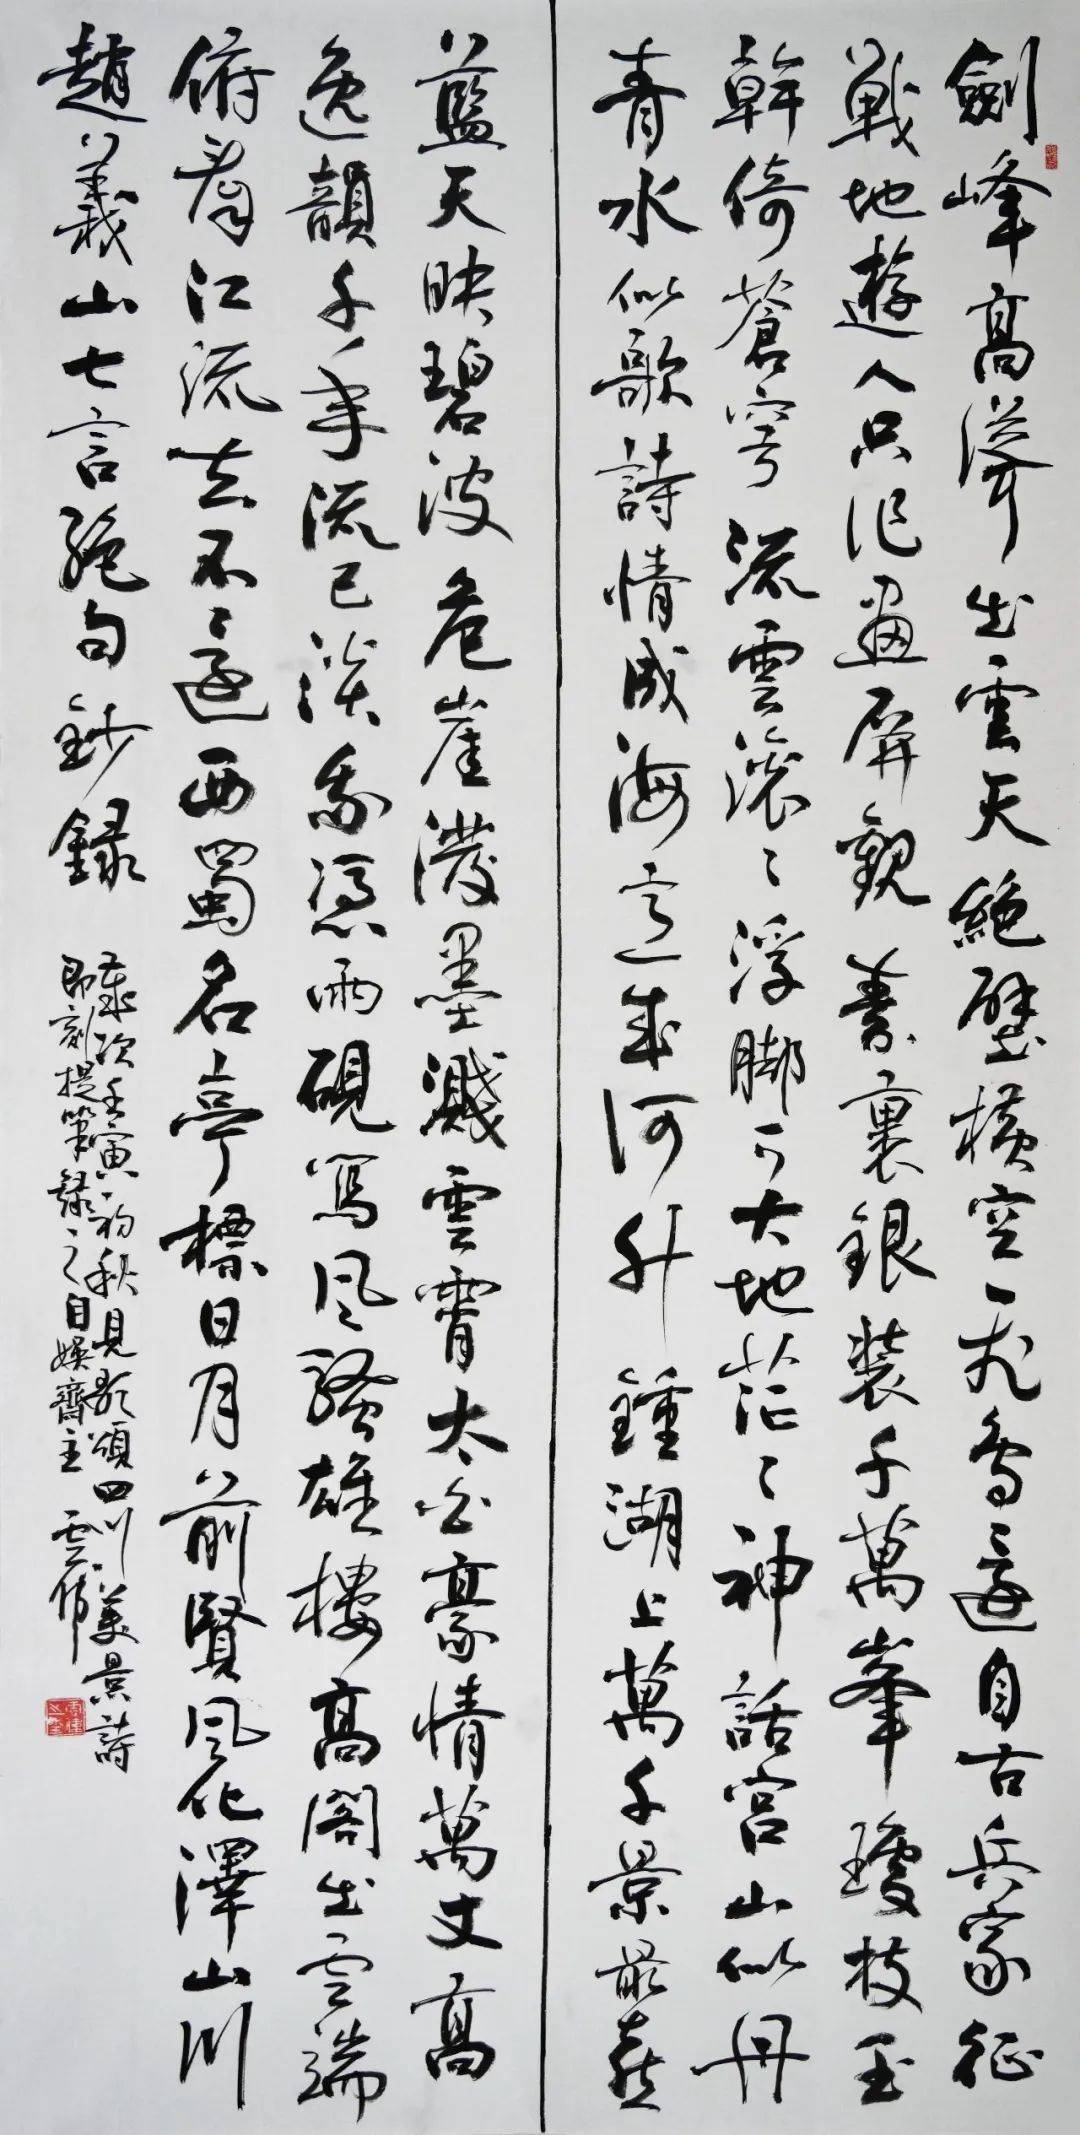 劍峰高聳出雲天絶壁橫空一飛鳥還自古兵家征
戰地遊人只作畫屏觀素裏銀裝千萬峯瓊枝玉
幹倚蒼穹流雲滾〻浮脚下大地茫〻神話宮山似丹
青水似歌詩情成海意成河升鍾湖上萬千景最
藍天映碧波危崖潑墨濺雲霄太白豪情萬丈高
逸韻千年流已淡我憑雨硯寫風騷雄樓高閣出雲端
俯看江流去不還西蜀名亭標日月前賢風化澤山川
趙義山七言絶句鈔錄
歲次壬寅初秋見歌頌四川美景詩
即刻提筆錄之自娛齋主